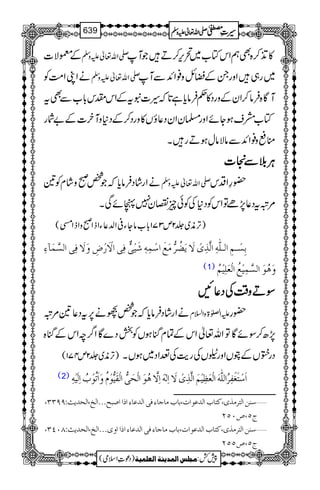 سیرتِ مصطفیٰ صلی اللہ تعالیٰ علیہ وسلم 639
کا تذکرہ بھی ہم اس کتاب میں تحریر کرتے ہیں جو آپ صلی اللہ تعالیٰ علیہ وسلم کے معمولات
میں رہی ہیں اور جن کے فضائل و فوائد سے آپ صلی اللہ تعالیٰ علیہ وسلم نے اپنی امت کو
آگاہ فرما کر ان کے ورد کا حکم فرمایا ہے تاکہ سیرت نبویہ کے اس مقدس باب سے بھی یہ
کتاب مشرف ہو جائے اور مسلمان ان دعاؤں کا ورد کر کے دنیا و آخرت کے بے شمار
منافع و فوائد سے مالا مال ہوتے رہیں۔
ہر بلا سے نجات
حضور اقدس صلی اللہ تعالیٰ علیہ وسلم نے ارشاد فرمایا کہ جو شخص صبح و شام کو تین
مرتبہ یہ دعا پڑھے تو اس کو دنیا کی کوئی چیز نقصان نہیں پہنچائے گی۔
(ترمذی جلد۲ ص۱۷۳ باب ماجاء فی الدعاء اذا اصبح واذا امسی)
بِسْمِ اللّٰهِ الَّذِیْ لَا یَضُرُّ مَعَ اسْمِهٖ شَیْءٌ فِی الْاَرْضِ وَلَا فِی السَّمَآءِ
وَهُوَ السَّمِیْعُ الْعَلِیْمُ (1)
سوتے وقت کی دعائیں
حضور علیہ الصلوٰۃ والسلام نے ارشاد فرمایا کہ جو شخص بچھونے پر یہ دعا تین مرتبہ
پڑھ کر سوئے گا تو اللہ تعالیٰ اس کے تمام گناہوں کو بخش دے گا اگرچہ اس کے گناہ
درختوں کے پتوں اور ٹیلوں کی ریت کی تعداد میں ہوں۔ (ترمذی جلد۲ ص۱۷۴)
اَسْتَغْفِرُ اللّٰهَ الْعَظِیْمَ الَّذِیْ لَا اِلٰهَ اِلَّا هُوَ الْحَیَّ الْقَیُّوْمَ وَاَتُوْبُ اِلَیْهِ (2)
1......سنن الترمذی، کتاب الدعوات، باب ماجاء فی الدعاء اذا اصبح...الخ، الحدیث: ۳۳۹۹،
ج۵، ص۲۵۰
2......سنن الترمذی، کتاب الدعوات، باب ماجاء فی الدعاء اذا اوی...الخ، الحدیث: ۳۴۰۸،
ج۵، ص۲۵۵
پیش کش: مجلس المدینة العلمیة (دعوتِ اسلامی)